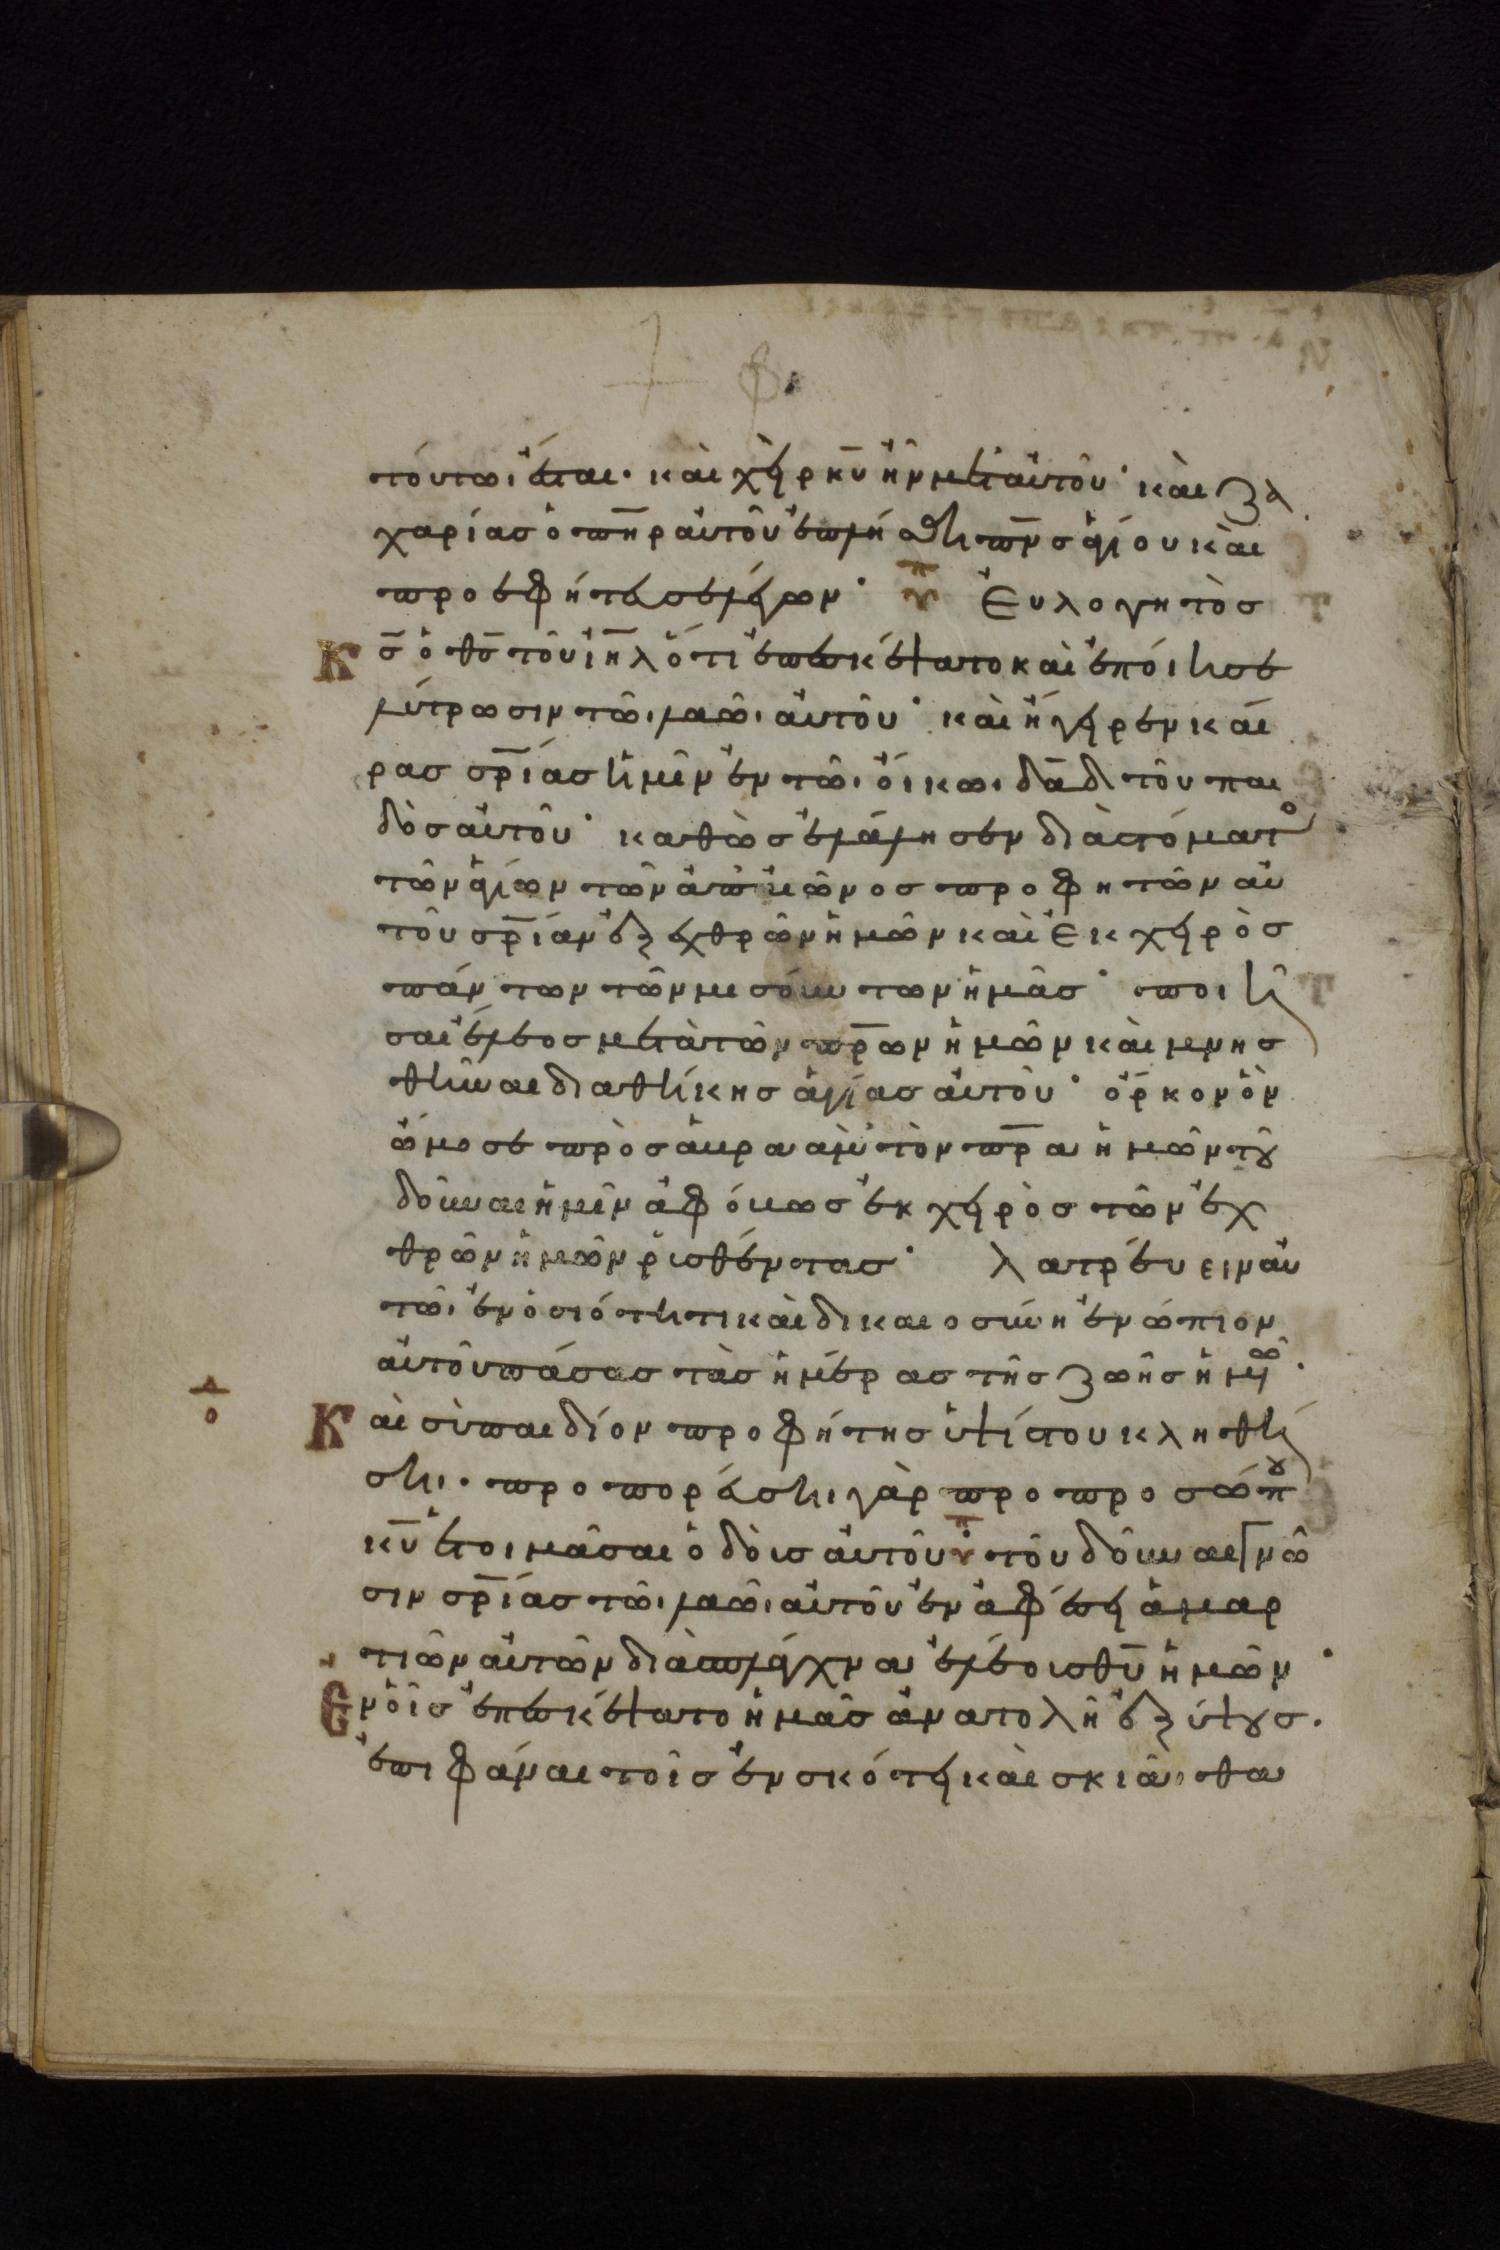 τοῦτο ἔσται· καὶ χεὶρ κ̅υ̅ ἦν μετ' αὐτοῦ· καὶ ζα
χαρίας ὁ π̅η̅ρ αὐτοῦ ἐπλήσθη π̅ν̅ς ἁγίου καὶ
προεφήτευσε λέγων· Εὐλογητὸς
Κ̅ς̅ ὁ θ̅ς̅ τοῦ ι̅η̅λ ὅτι ἐπεσκέψατο καὶ ἐποίησε
λύτρωσιν τῶι λαῶι αὐτοῦ· καὶ ἤγειρεν κέ
ρας σ̅ρ̅ίας ἡμῖν ἐν τῶι οἴκωι δ̅α̅δ̅ τοῦ παι
δὸς αὐτοῦ· καθὼς ἐλάλησεν διὰ στόματο
τῶν ἁγίων τῶν ἀπ' αἰῶνος προφητῶν αὐ
τοῦ σ̅ρ̅ίαν ἐξ ἐχθρῶν ἡμῶν καὶ ἐκ χειρὸς
πάντων τῶν μισούντων ἡμᾶς· ποιῆ
σαι ἔλεος μετὰ τῶν π̅ρ̅ων ἡμῶν καὶ μνησ
θῆναι διαθήκης ἁγίας αὐτοῦ· ὅρκον ὃν
ὤμοσε πρὸς ἀβραὰμ τὸν π̅ρ̅α ἡμῶν τοῦ
δοῦναι ἡμῖν ἀφόβως ἐκ χειρὸς τῶν ἐχ
θρῶν ἡμῶν ῥυσθέντας· λατρεύειν αὐ
τῶι ἐν ὁσιότητι καὶ δικαιοσύνη ἐνώπιον
αὐτοῦ πάσας τὰς ἡμέρας τῆς ζωῆς ἡμῶ·
Καὶ σὺ παιδίον προφήτης ὑψίστου κληθή
ση· προπορεύση γὰρ πρὸ προσώπου
κ̅υ̅ ἑτοιμᾶσαι ὁδοὺς αὐτοῦ τοῦ δοῦναι γνῶ
σιν σ̅ρ̅ίας τῶι λαῶι αὐτοῦ ἐν ἀφέσει ἁμαρ
τιῶν αὐτῶν διὰ σπλάγχνα ἐλέους θ̅υ̅ ἡμῶν·
Ἐν οἷς ἐπεσκέψατο ἡμᾶς ἀνατολὴ ἐξ ὕψους·
ἐπιφᾶναι τοῖς ἐν σκότει καὶ σκιᾶι θα